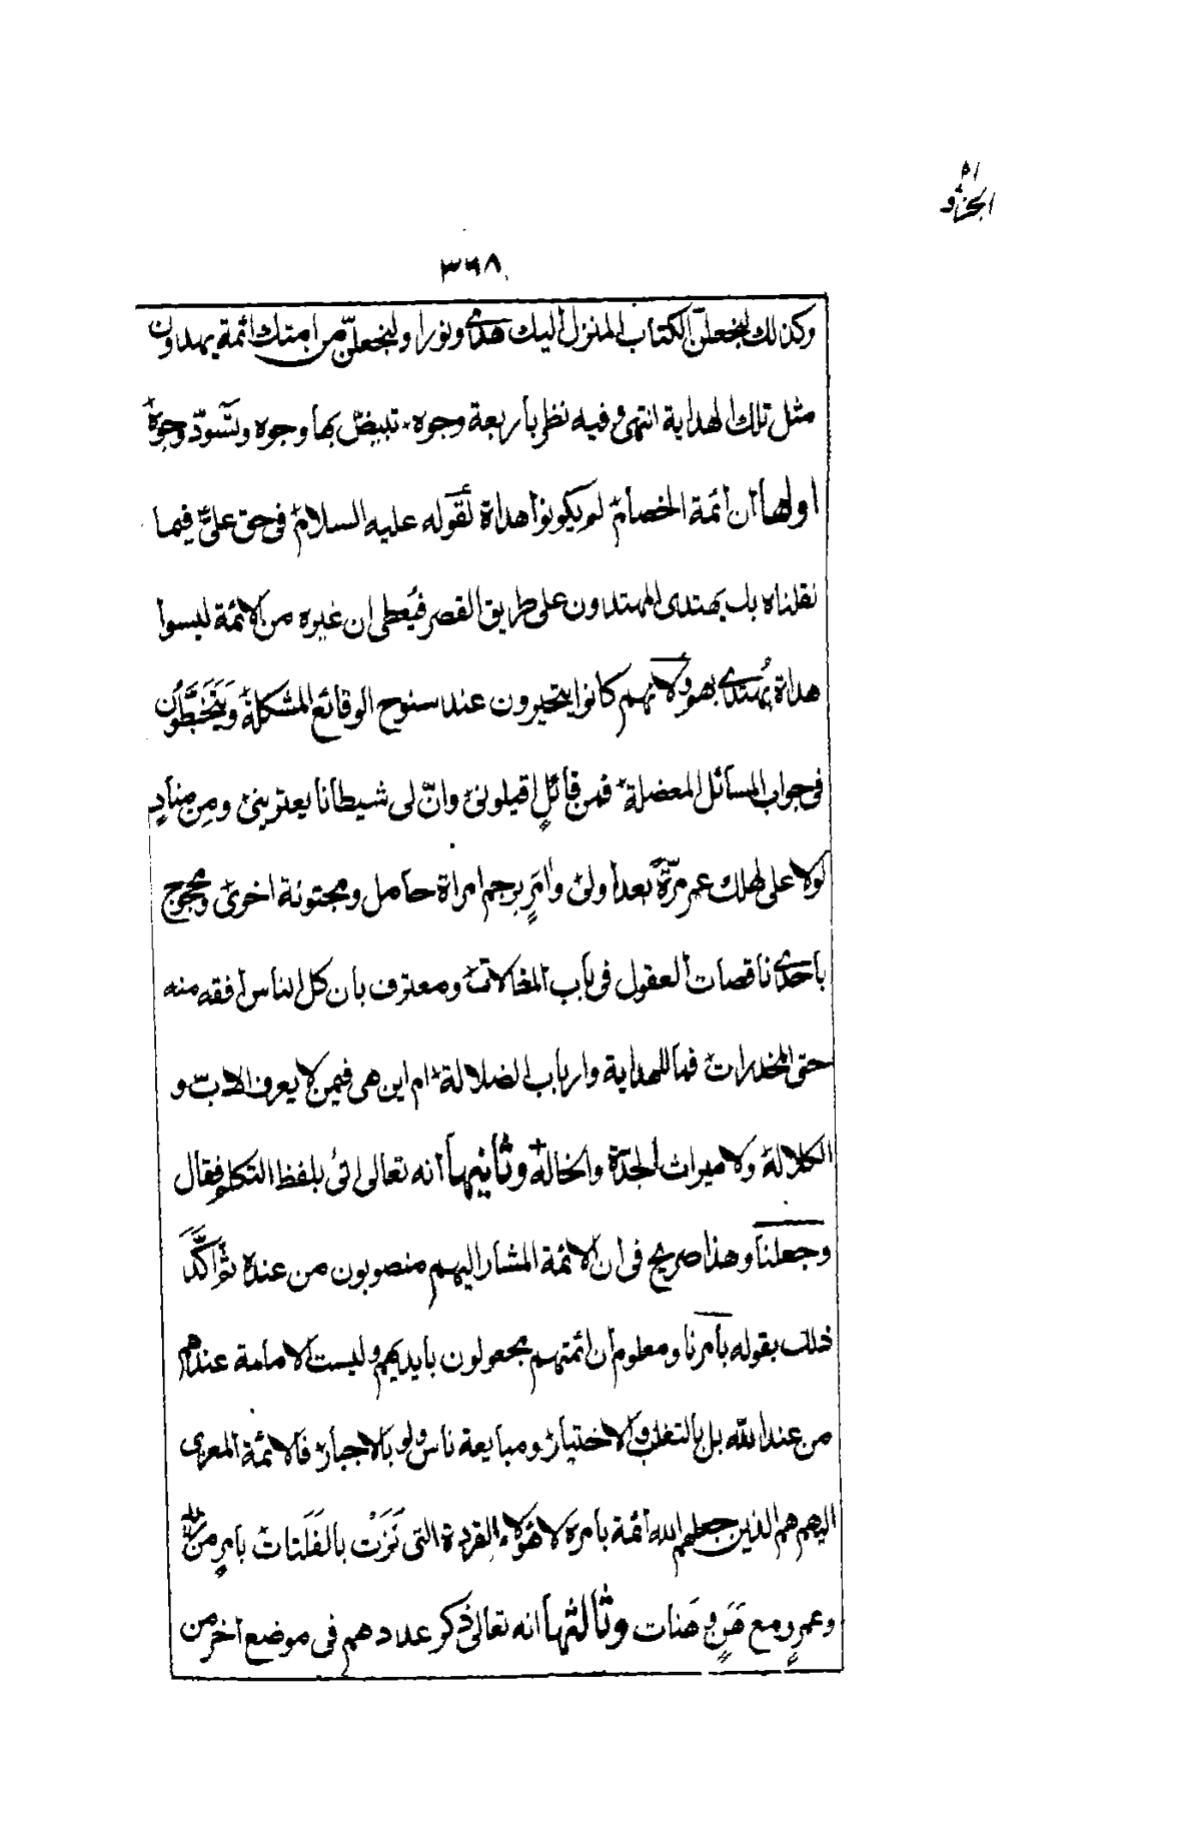 ٣٦٨
وكذلك لنجعلنّ الكتاب المنزل اليك هدى ونورا ولنجعلنّ من امتك ائمة يهدون
مثل تلك الهداية انتهى وفيه نظر بأربعة وجوه تبيضّ بها وجوه وتسودّ وجوه
اولها ان ائمة الخصام لم يكونوا هداة لقوله عليه السلام فى حق علىّ فيما
نقلناه بك يهتدى المهتدون على طريق القصر فيُعطى ان غيره من الائمة ليسوا
هداة يُهتدى بهم ولانهم كانوا يتحيرون عند سنوح الوقائع المشكلة ويَتَخَبَّطُون
فى جواب المسائل المعضلة فمن قائلٍ اقيلونى وانّ لى شيطانا يعترينى ومِن منادٍ
لولا على لهلك عمر مرّةً بعد اولى وامرٍ برجم امراة حامل ومجنونة اخرى ومحجوج
باحدى ناقصات العقول فى باب المغالات ومعترف بان كل الناس افقه منه
حتى المخدرات فما للهداية وارباب الضلالة ام اين هى فيمن لا يعرف الابّ و
الكلالة ولا ميراث الجدّة والخالة وثانيها انه تعالى اتى بلفظ التكلم فقال
وجعلنا وهذا صريح فى ان الائمة المشار اليهم منصوبون من عنده ثم اكّد
ذلك بقوله بأمرنا ومعلوم ان ائمتهم مجعولون بايديهم وليست الامامة عندهم
من عند الله بل بالتغلب والاختيار ومبايعة ناس ولو بالاجبار فالائمة المعزى
اليهم هم الذين جعلهم الله ائمة بأمره لا هؤلاء القردة التى نَزَتْ بالفَلَتات بأمرٍ من
وعمرٍو مع هَنٍ وهَنات وثالثها انه تعالى ذكر عددهم فى موضع اخر من